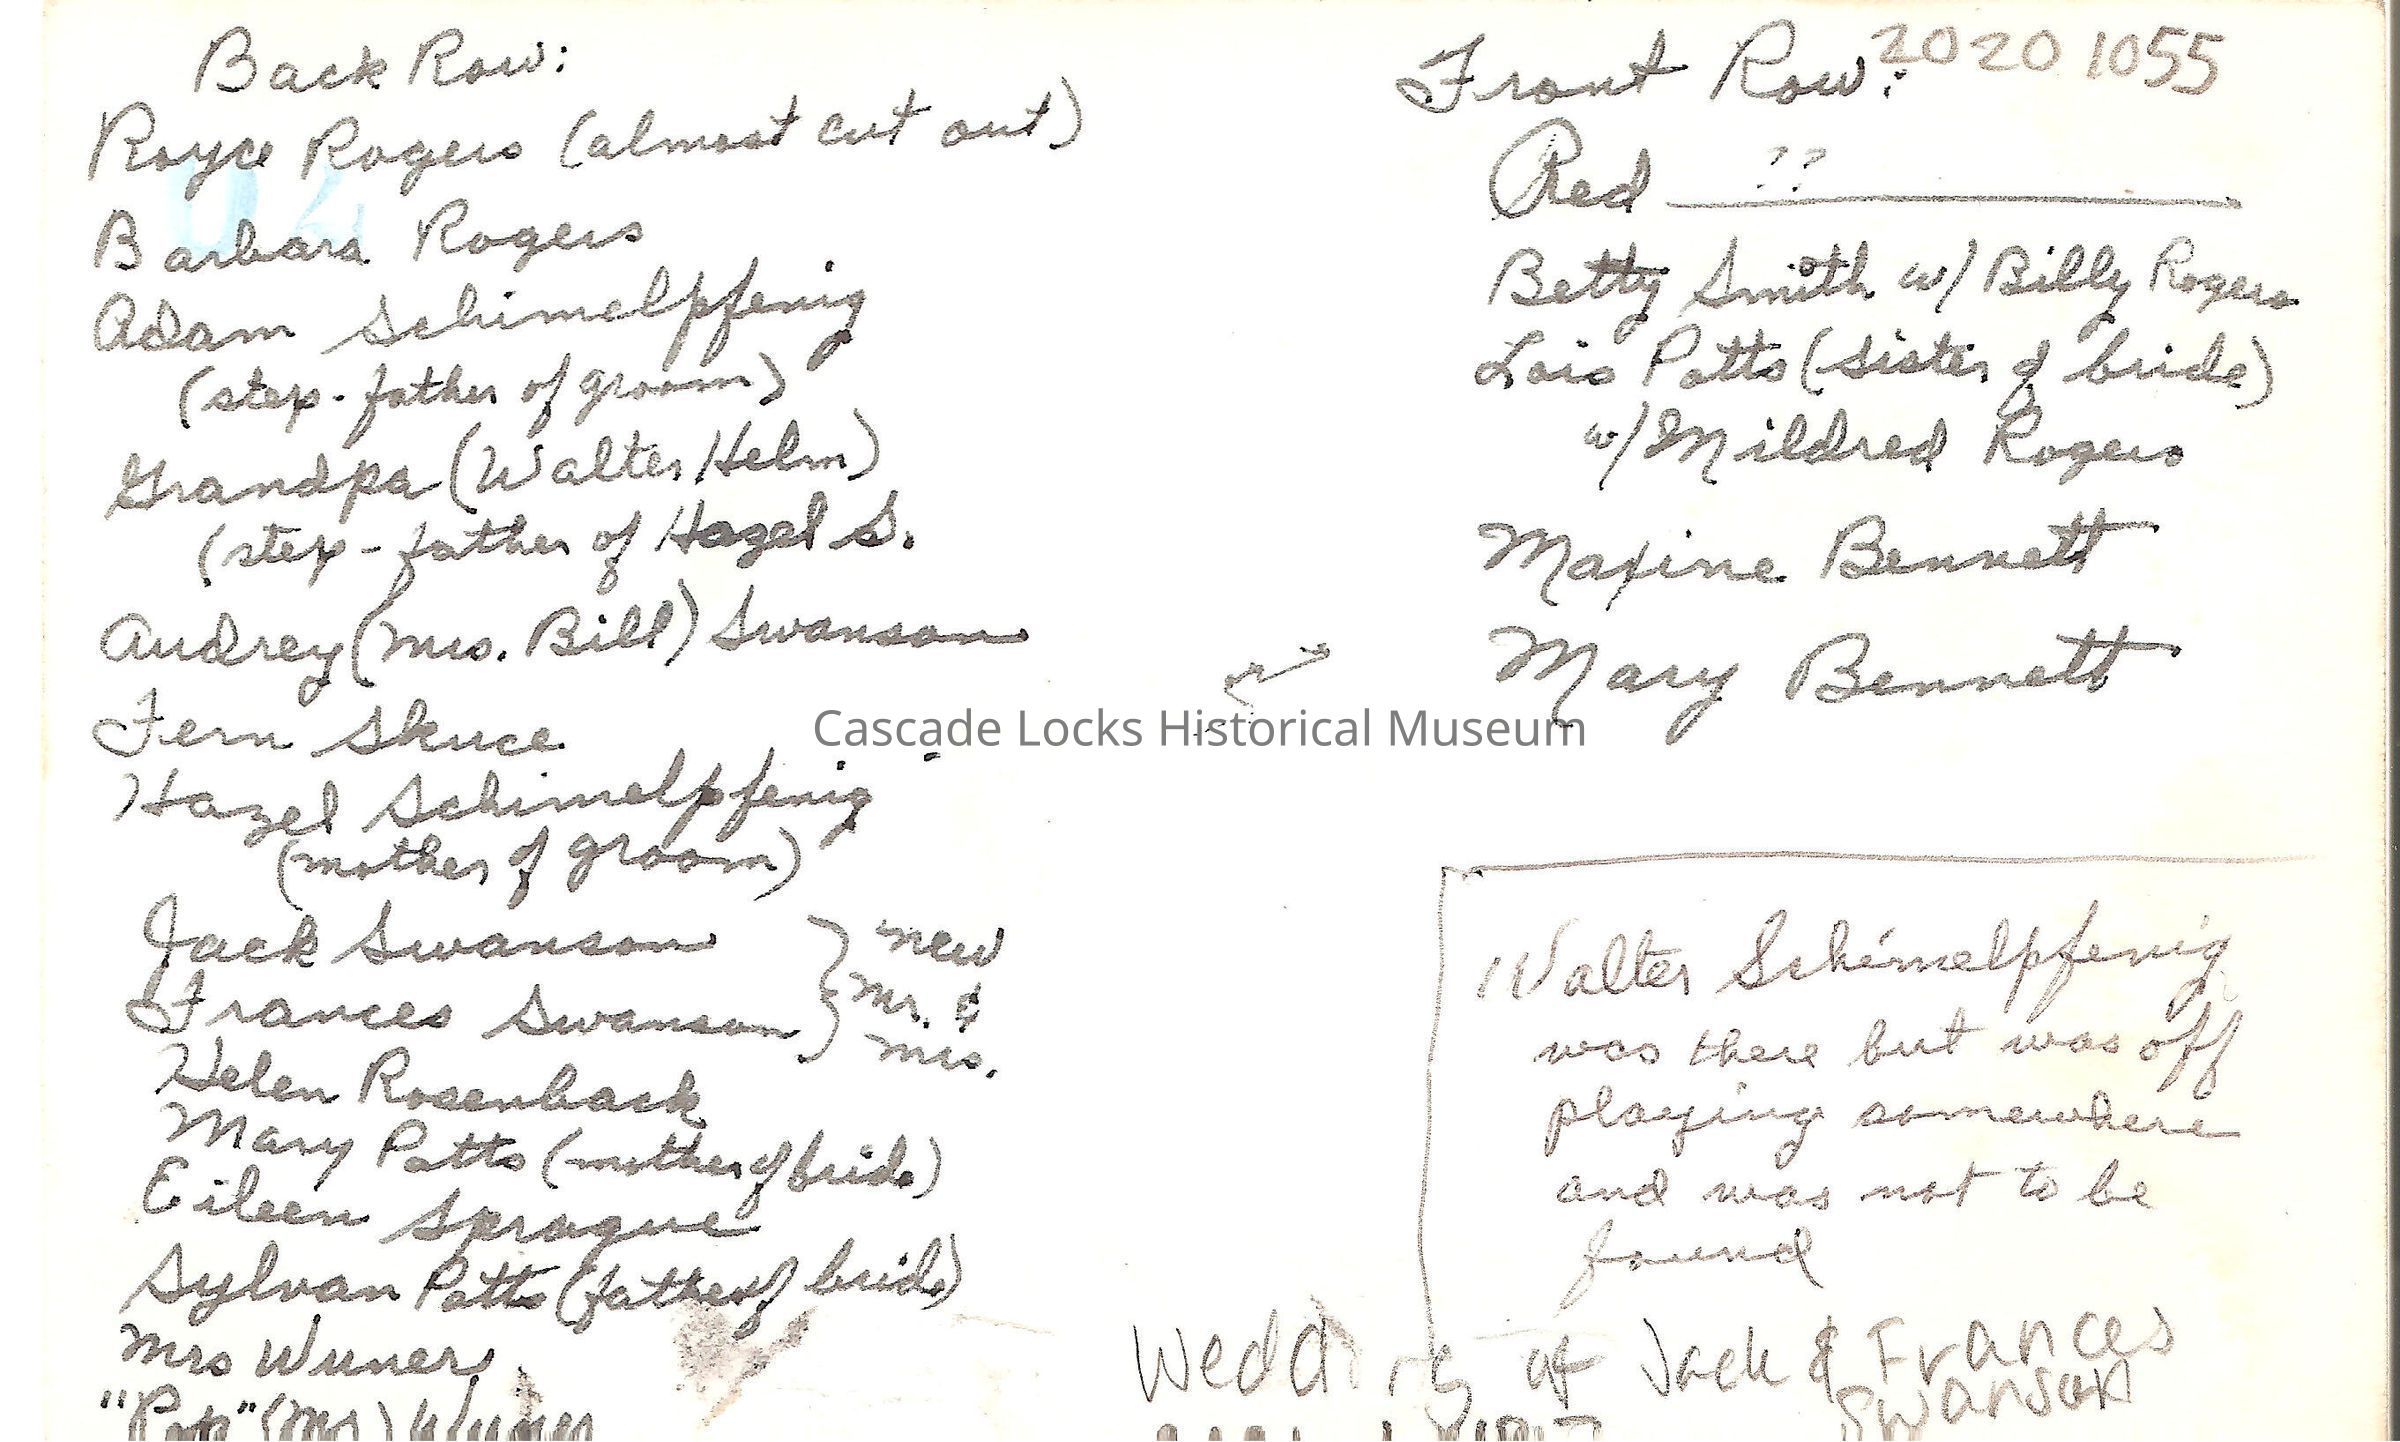 Back Row:
Royce Rogers (almost cut out)
Barbara Rogers
Adam Schimelpfenig
(step-father of groom)
Grandpa (Walter Helm)
(step-father of Hazel S.
Audrey (Mrs. Bill) Swanson
Fern Skuce
Hazel Schimelpfenig
(mother of groom)
Jack Swanson
Frances Swanson
} new
Mr. &
Mrs.
Helen Rosenback
Mary Potts (mother of bride)
Eileen Sprague
Sylvan Potts (father of bride)
Mrs Wuner
"Pop" (Mr) Wuner
2020 1055
Front Row:
Red ??
Betty Smith w/ Billy Rogers
Lois Potts (sister of bride)
w/ Mildred Rogers
Maxine Bennett
Mary Bennett
Cascade Locks Historical Museum
Walter Schimelpfenig
was there but was off
playing somewhere
and was not to be
found
Wedding of Jack & Frances
Swanson